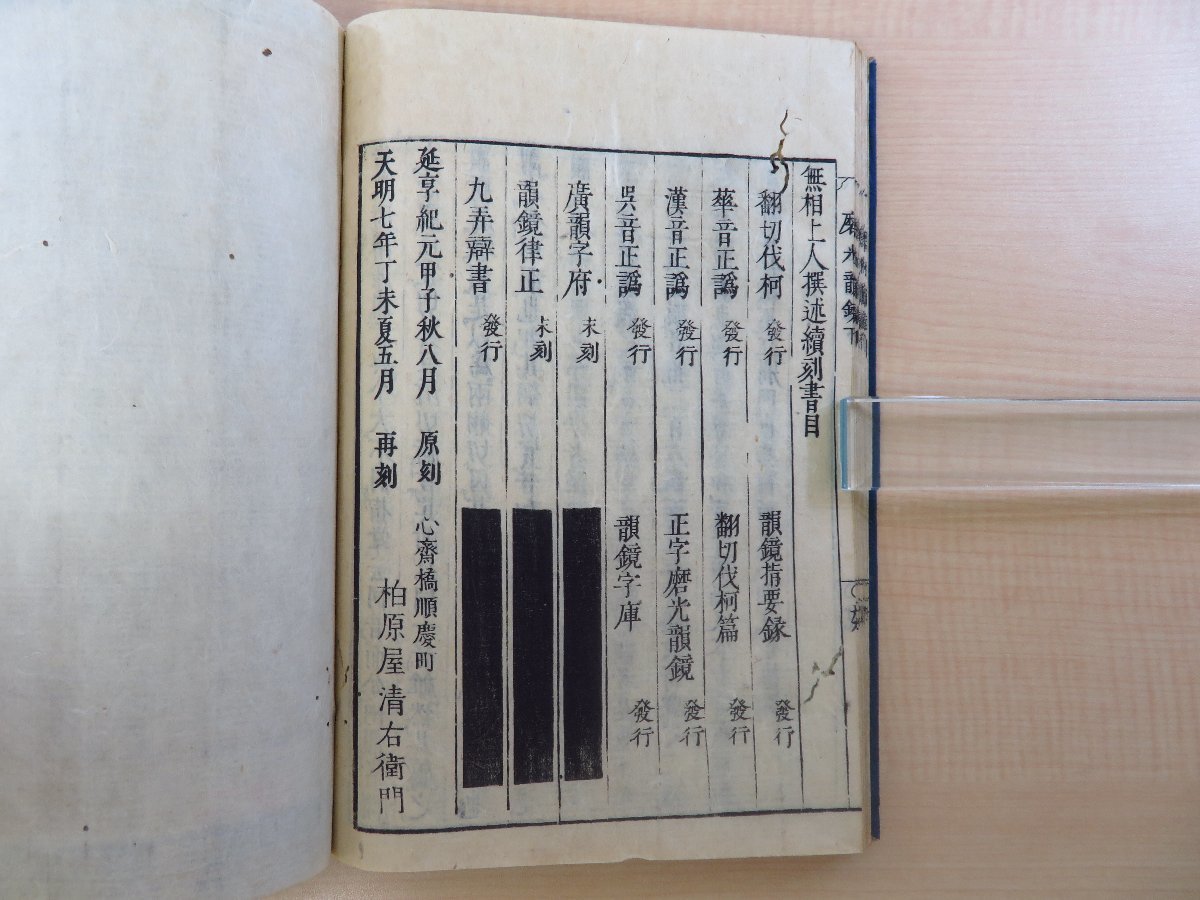 無相上人撰述續刻書目
翻切伐柯 發行 韻鏡指要錄 發行
華音正譌 發行 翻切伐柯篇 發行
漢音正譌 發行 正字磨光韻鏡 發行
吳音正譌 發行 韻鏡字庫 發行
廣韻字府 未刻
韻鏡律正 未刻
九弄辯書 發行
延享紀元甲子秋八月 原刻 心齋橋順慶町
天明七年丁未夏五月 再刻 柏原屋清右衛門